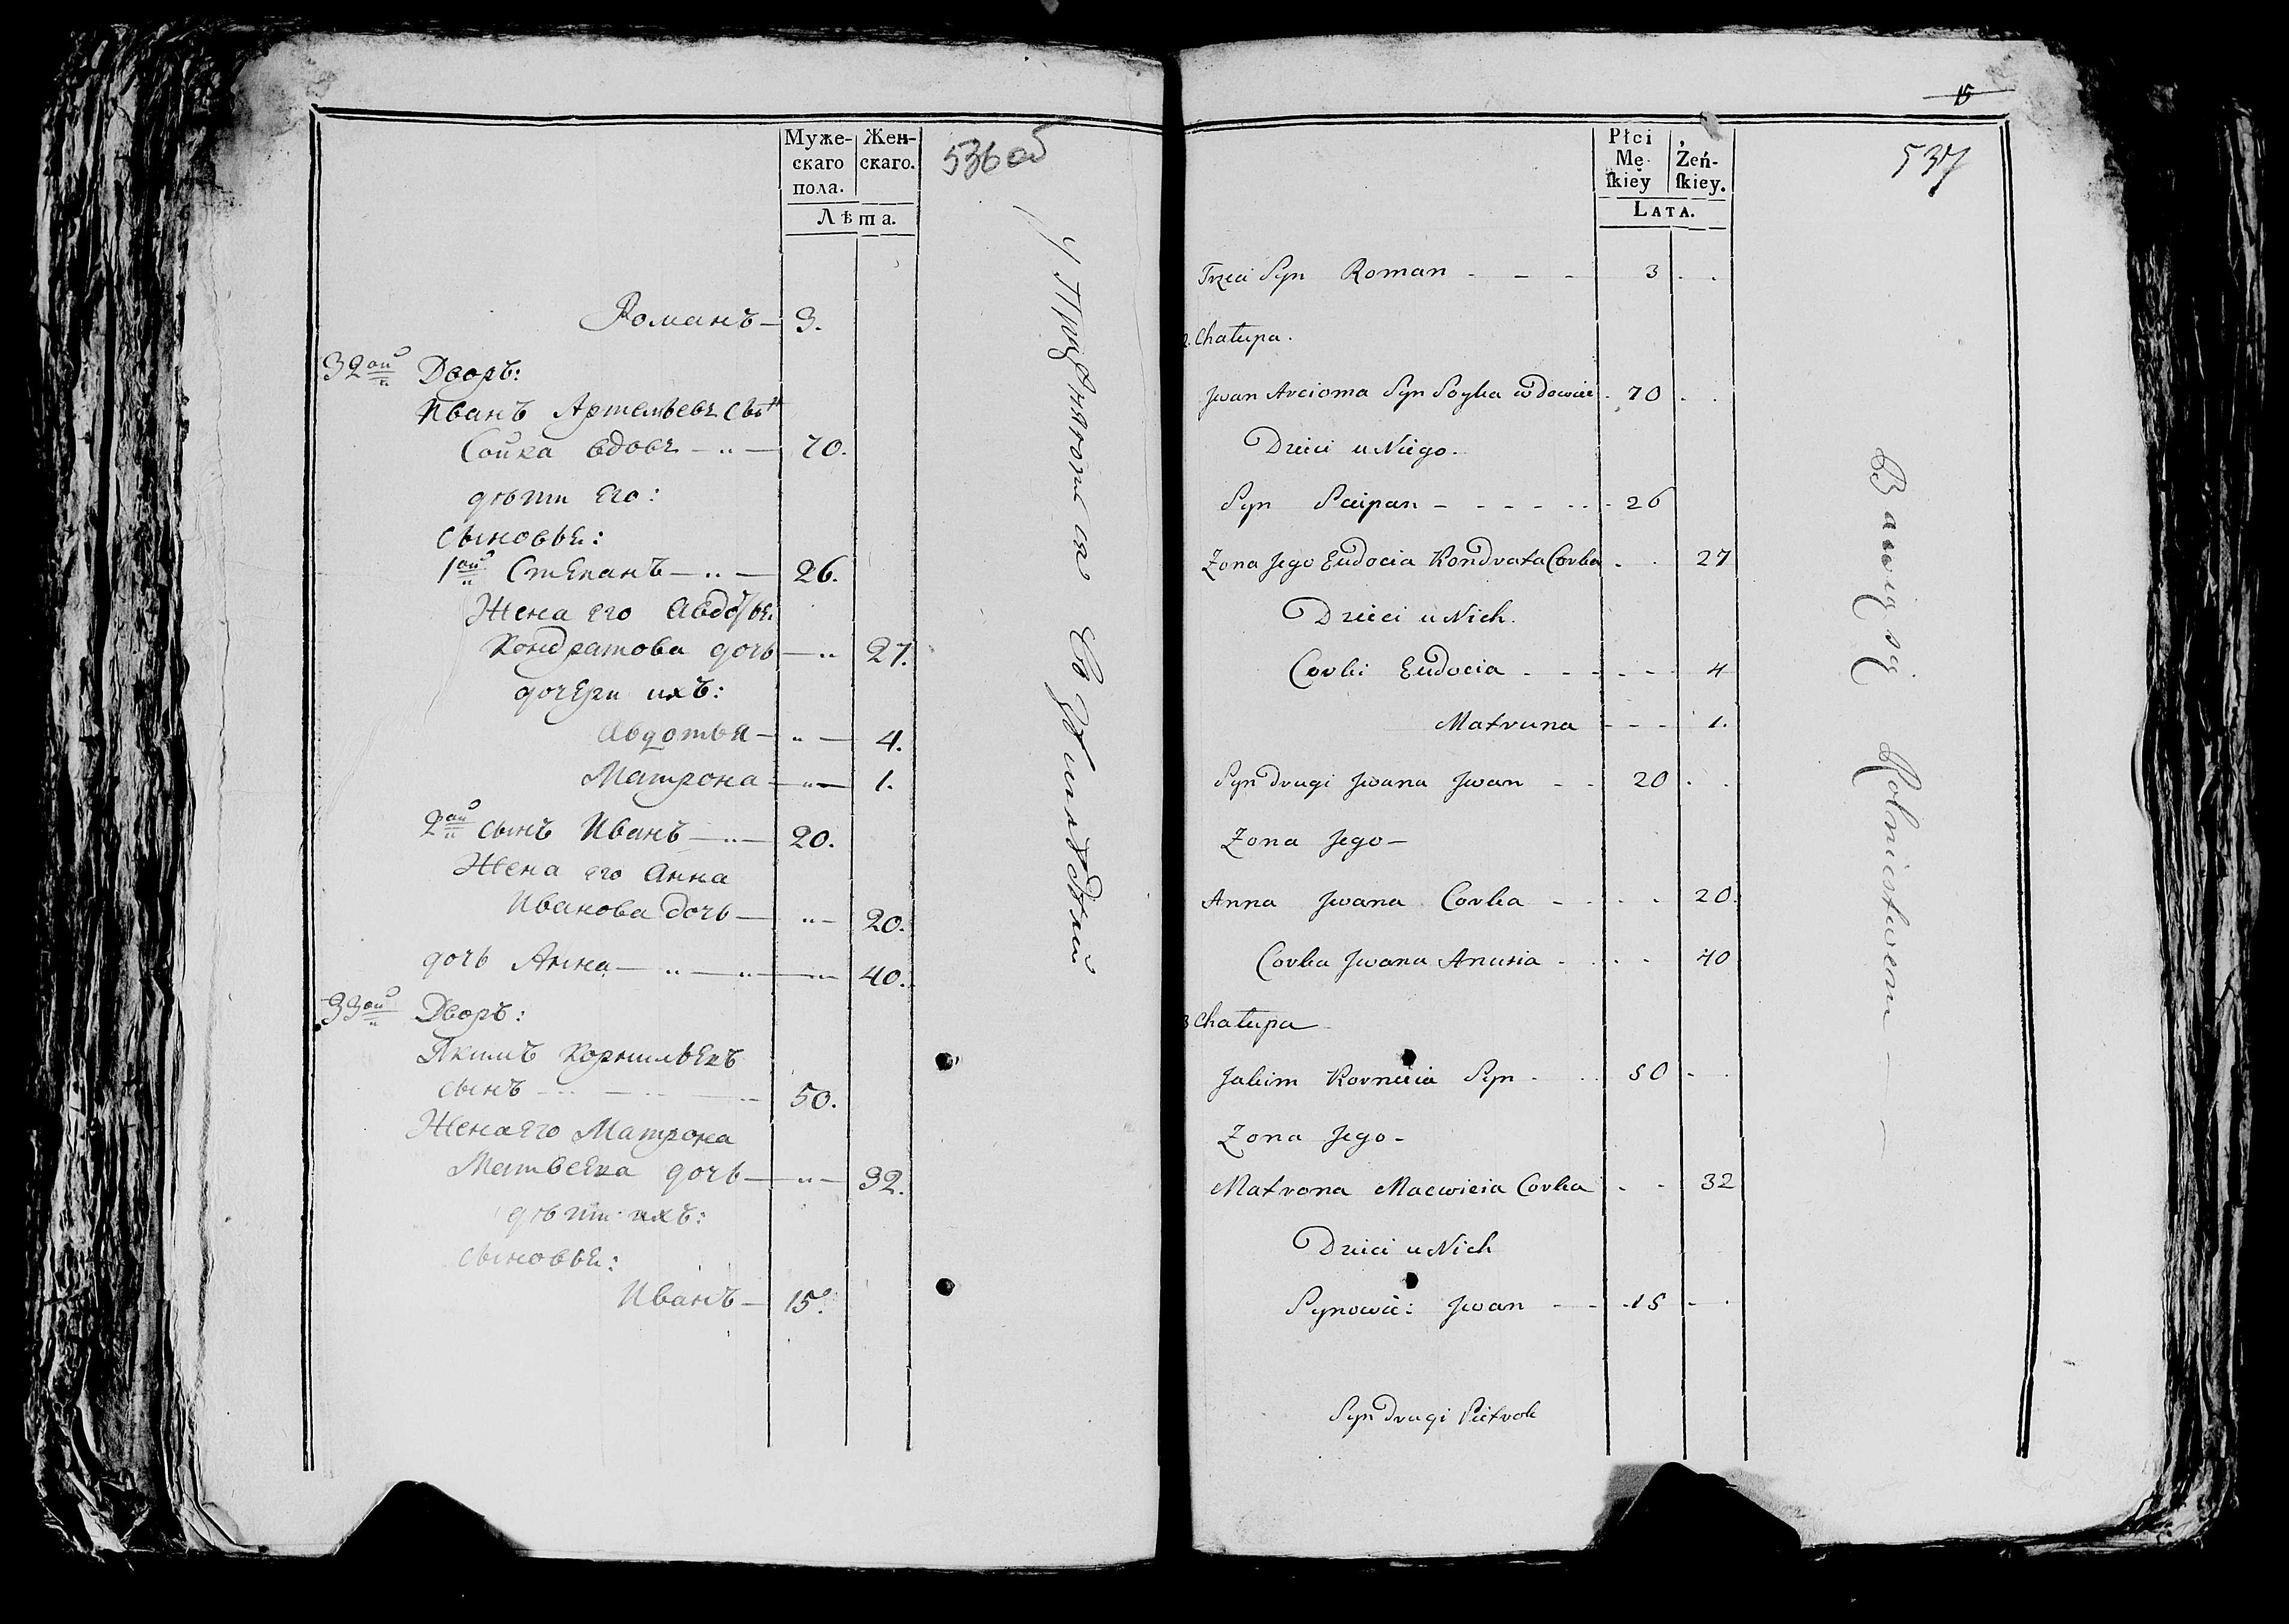 Муже-
скаго
пола.
Жен-
скаго.
Лѣта.
536 об
Романъ — 3.
32ой Дворъ:
Иванъ Артемьевъ сынъ
Сойка вдовъ — 70.
дѣти Его:
сыновья:
1ой Степанъ — 26.
Жена его Авдотья
Кондратова дочь — 27.
дочери ихъ:
Авдотья — 4.
Матрона — 1.
2ой сынъ Иванъ — 20.
Жена его Анна
Иванова дочь — 20.
дочь Анна — 40.
33ой Дворъ:
Якимъ Корнильевъ
сынъ — 50.
Жена его Матрона
Матвеева дочь — 32.
дѣти ихъ:
сыновья:
Иванъ — 15.
15
Płci
Mę-
ſkiey
Żeń-
ſkiey.
LATA.
537
Trzeci Syn Roman - - - 3 . .
2. Chałupa.
Jwan Arcioma Syn Soyka wdowiec . 70 . .
Dzieci u Niego.
Syn Sciepan - - - - - 26
Zona Jego Eudocia Kondrata Corka . . 27
Dzieci u Nich.
Corki Eudocia - - - - - 4
Matruna - - - 1.
Syn drugi Jwana Jwan - - 20 . .
Zona Jego -
Anna Jwana Corka - . . 20.
Corka Jwana Anusia . . . 40
3 Chałupa
Jakim Kornieia Syn . . 50 . .
Zona Jego -
Matrona Macwieia Corka . . 32
Dzieci u Nich
Synowie: Jwan - - 15 - .
Syn drugi Pietrok
Bawią się Rolnictwem